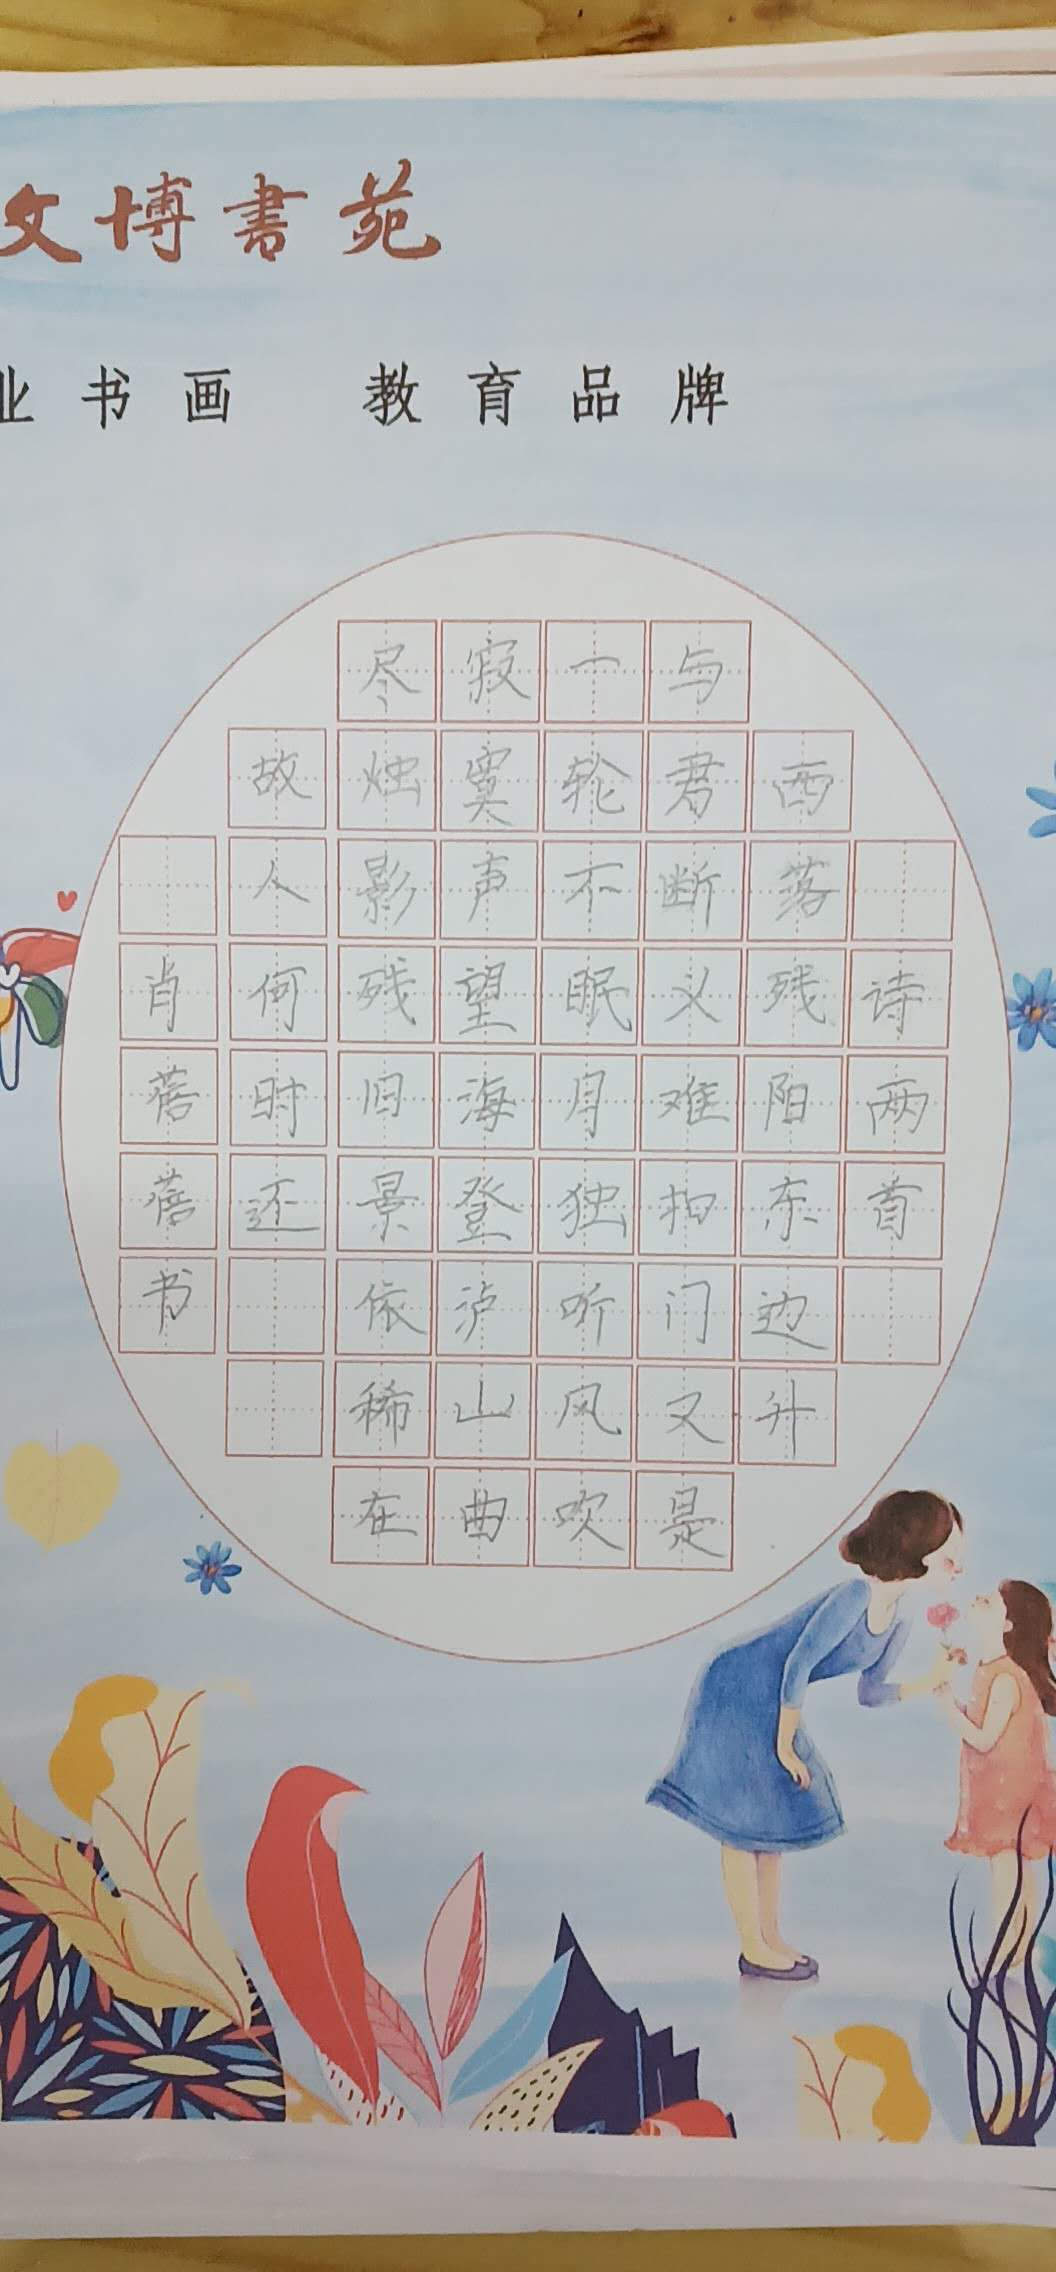 文博書苑
业书画 教育品牌
诗两首
西落残阳东边升
与君断义难拍门又是
一轮不眠月独听风吹
寂寞声望海登泸山曲
尽烛影残旧景依稀在
故人何时还
肖蓓蓓书